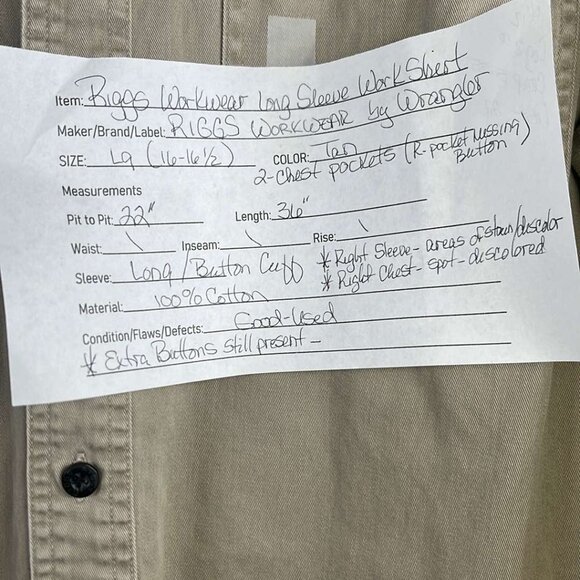 Item: Riggs Workwear Long Sleeve Work Shirt
Maker/Brand/Label: RIGGS WORKWEAR by Wrangler
SIZE: Lg (16-16 1/2) COLOR: Tan
2-Chest pockets (R-pocket missing Button)
Measurements
Pit to Pit: 22" Length: 36"
Waist: \ Inseam: \ Rise: \
Sleeve: Long / Button Cuff * Right Sleeve - areas of stain/discolor
Material: 100% Cotton * Right Chest - spot - discolored
Condition/Flaws/Defects: Good-Used
* Extra Buttons still present -